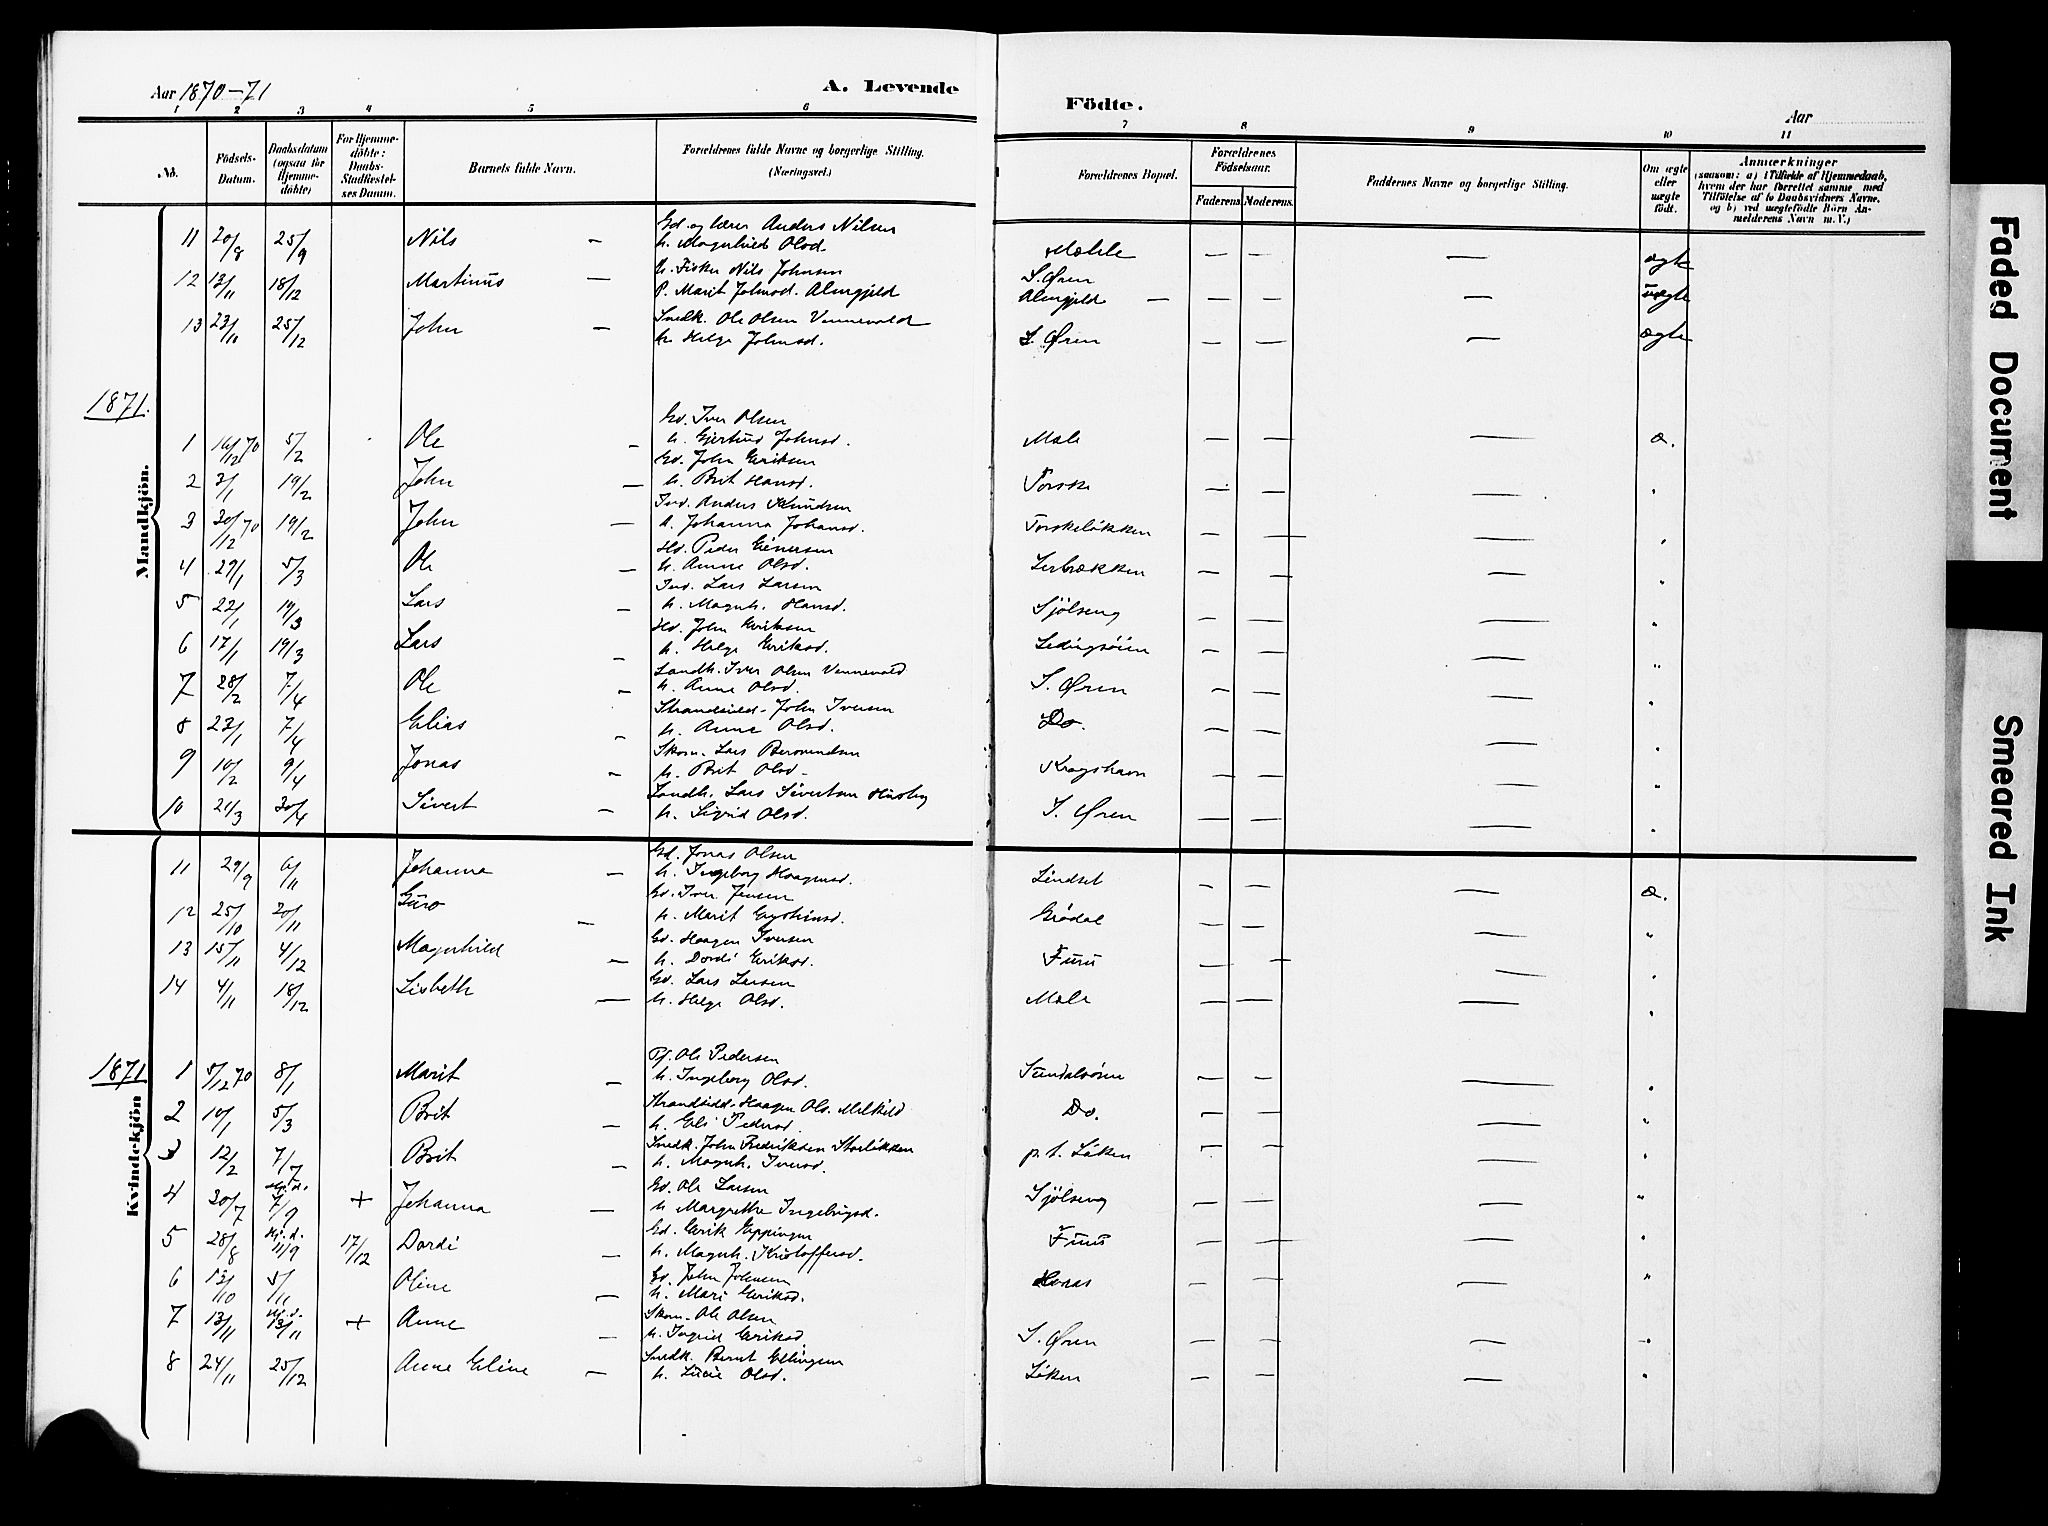 Aar 1870-71
A. Levende
Födte.
Aar
1 2 3 4 5 6 7 8 9 10 11
No.
Födsels-Datum.
Daabsdatum (ogsaa for Hjemme-döbte)
For Hjemme-döbte: Daabs-Stadfæstel-ses Datum.
Barnets fulde Navn.
Forældrenes fulde Navne og borgerlige Stilling. (Næringsvei.)
Forældrenes Bopæl.
Forældrenes Födselsaar.
Faderens Moderens.
Faddernes Navne og borgerlige Stilling.
Om ægte eller uægte födt.
Anmærkninger
(saasom: a) i Tilfælde af Hjemmedaab, hvem der har forrettet samme med Tilföielse af to Daabsvidners Navne. og b) ved uægtefödte Börn An-melderens Navn m. V.)
11 20/8 25/9 Nils — Gd og lærer Anders Nilsen
h. Magnhild Olsd. Mæhle — — — ægte
12 13/11 18/12 Martinus — U. Fisker Nils Johnsen S. Øren
P. Marit Johnsd. Almgjeld Almgjeld — — — — uægte
13 23/11 25/12 John — Snedk. Ole Olsen Vennevold
h. Helge Johnsd. S. Øren — — — ægte
1871.
Mandkjön.
1 16/12 70 5/2 Ole — Gd. Iver Olsen
h. Gjertrud Johnsd. Mæle — — — æ.
2 3/1 19/2 John — Gd. John Eriksen
h. Brit Hansd. Torske — — — "
3 30/12 70 19/2 John — Ind. Anders Knudsen
h. Johanna Johansd. Torskeløkken — — — "
4 29/1 5/3 Ole — Hd. Peder Einersen
h. Anne Olsd. Lerbrækken — — — "
5 22/1 19/3 Lars — Ind. Lars Larsen
h. Magnh. Hansd. Sjølseng — — — "
6 17/1 19/3 Lars — Hd. John Eriksen
h. Helge Eriksd. Ledingsøien — — — "
7 28/2 7/4 Ole — Landh. Iver Olsen Vennevold
h. Anne Olsd. S. Øren — — — "
8 23/1 7/4 Elias — Strandsidd. John Iversen
h. Anne Olsd. Do. — — — "
9 10/2 9/4 Jonas — Skom. Lars
h. Brit Olsd. Kragshavn — — — "
10 21/3 30/4 Sivert — Landh. Lars Sivertsen Husby
h. Sigrid Olsd. S. Øren — — — "
11 29/9 6/11 Johanna — Gd. Jonas Olsen
h. Ingeborg Haagensd. Lindset — — — æ.
12 25/10 20/11 Guro — Gd. Iver Jensen
h. Marit Grødal — — — "
13 15/11 4/12 Magnhild — Gd. Haagen Iversen
h. Dordi Eriksd. Furu — — — "
14 4/11 18/12 Lisbeth — Gd. Lars Larsen
h. Helge Olsd. Mæle — — — "
1871
Kvindekjön
1 5/12 70 8/1 Marit — Pf. Ole Pedersen
h. Ingeborg Olsd. Sundalsøren — — — "
2 10/1 5/3 Brit — Strandsidd. Haagen Ols. Melkild
h. Eli Pedersd. Do. — — — "
3 12/2 7/7 Brit — Snedk. John Fredriksen Storløkken
h. Magnh. Iversd. p. t. Løken — — — "
4 20/7 Hj. d. 7/9 + Johanna — Gd. Ole Larsen
h. Margrethe Ingebrigtsd. Sjølseng — — — "
5 28/8 Hj. d. 11/9 17/12 Dordi — Gd. Erik
h. Magnh. Kristoffersd. Furu — — — "
6 13/10 5/11 Oline — Gd. John Johnsen
h. Mari Eriksd. Hoaas — — — "
7 13/11 Hj. d. 13/11 + Anne — Skom. Ole Olsen
h. Ingrid Eriksd. S. Øren — — — "
8 24/11 25/12 Anne Eline — Snedk. Bernt Ellingsen
h. Lucie Olsd. Løken — — — "
Faded Document
Smeared Ink